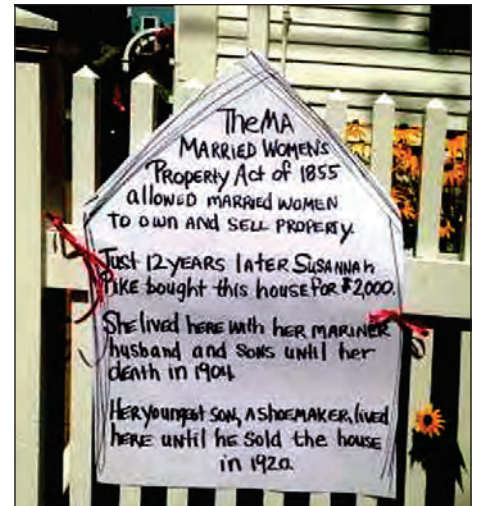 The MA
MARRIED WOMEN'S
PROPERTY Act of 1855
allowed MARRIED WOMEN
TO OWN AND SELL PROPERTY.
Just 12 YEARS lATER SUSANNAh
PIKE bought this house FOR $2,000.
She lived here with her MARINER
husband and SONS until her
death in 1904.
HER youngest son, A shoEMAKER, lived
HERE until he Sold the house
in 1920.